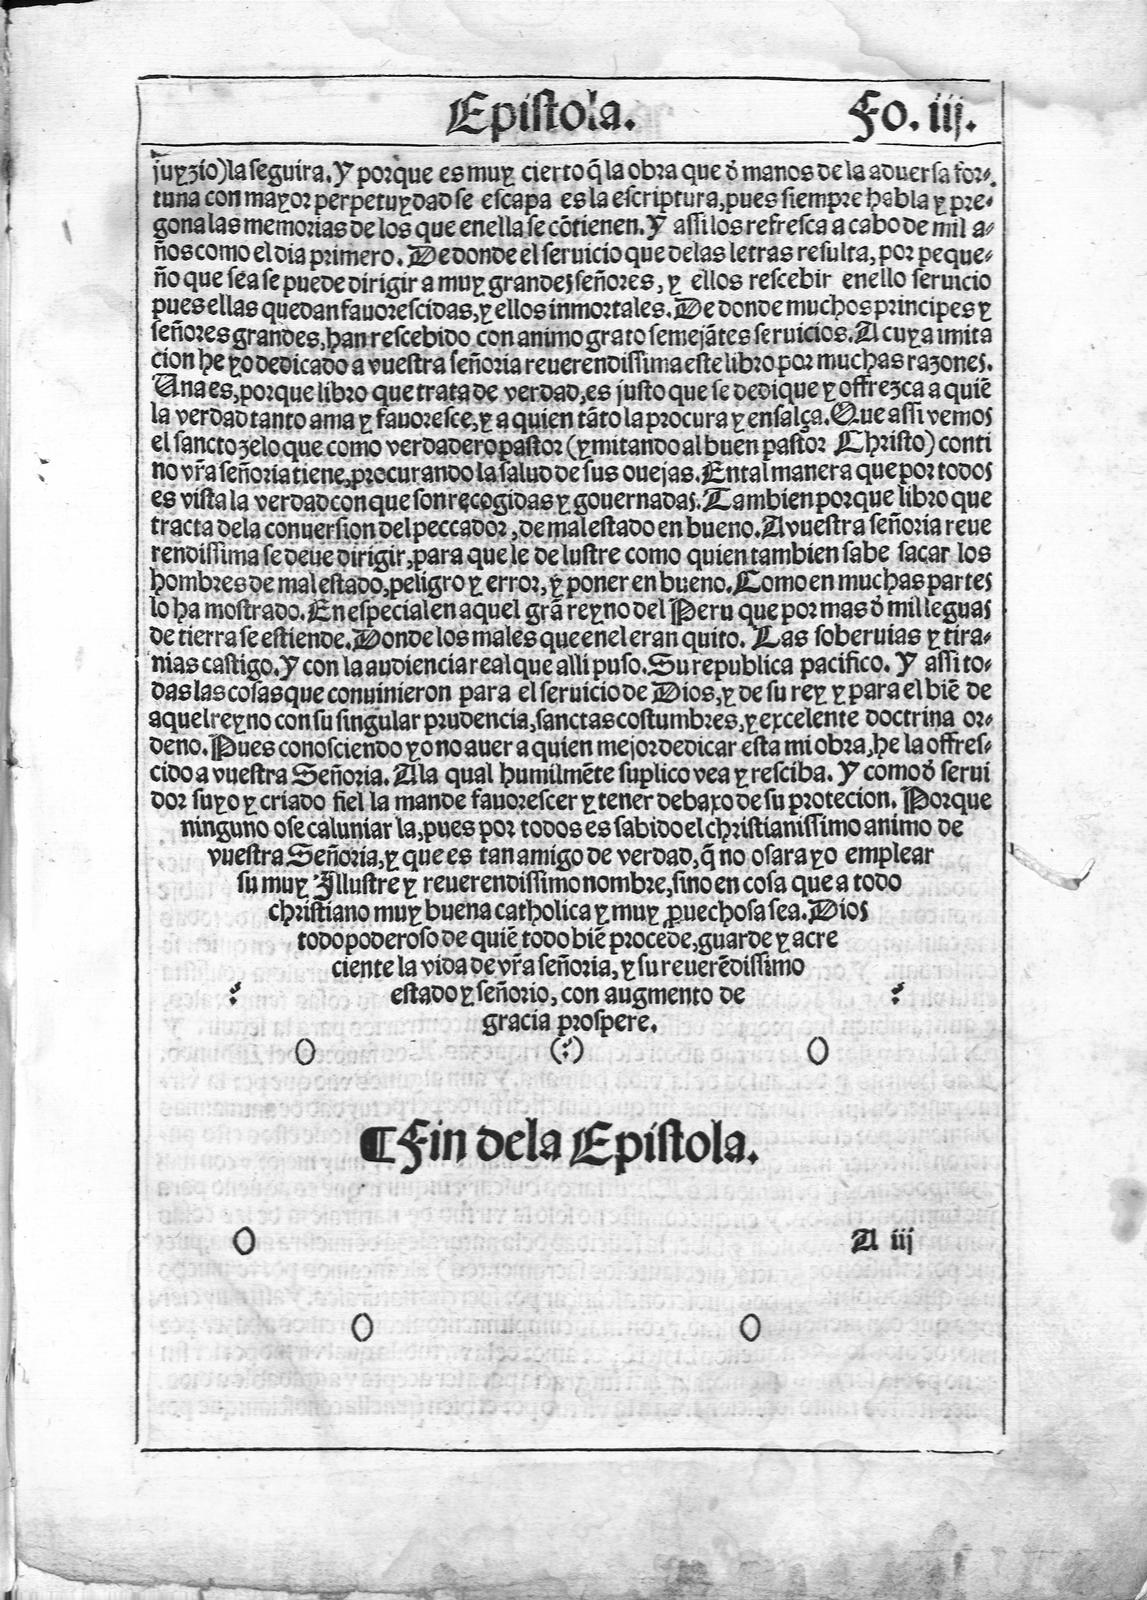 Epistola. Fo. iij.
juyzio)la seguira. Y porque es muy cierto q̃ la obra que d̕ manos de la aduersa for-
tuna con mayor perpetuydad se escapa es la escriptura, pues siempre habla y pre-
gona las memorias de los que enella se cõtienen. Y assi los refresca a cabo de mil a-
ños como el dia primero. De donde el seruicio que delas letras resulta, por peque-
ño que sea se puede dirigir a muy grandes señores, y ellos rescebir enello seruicio
pues ellas quedan fauorescidas, y ellos inmortales. De donde muchos principes y
señores grandes, han rescebido con animo grato semejãtes seruicios. A cuya imita
cion he yo dedicado a vuestra señoria reuerendissima este libro por muchas razones.
Una es, porque libro que trata de verdad, es justo que se dedique y offrezca a quiẽ
la verdad tanto ama y fauoresce, y a quien tãto la procura y ensalça. Que assi vemos
el sancto zelo que como verdadero pastor (ymitando al buen pastor Christo) conti
no vr̃a señoria tiene, procurando la salud de sus ouejas. En tal manera que por todos
es vista la verdad con que son recogidas y gouernadas. Tambien porque libro que
tracta dela conuersion del peccador, de mal estado en bueno. A vuestra señoria reue
rendissima se deue dirigir, para que le de lustre como quien tambien sabe sacar los
hombres de mal estado, peligro y error, y poner en bueno. Como en muchas partes
lo ha mostrado. En especial en aquel grã reyno del Peru que por mas d̕ mil leguas
de tierra se estiende. Donde los males que enel eran quito. Las soberuias y tira-
nias castigo. Y con la audiencia real que alli puso. Su republica pacifico. Y assi to-
das las cosas que conuinieron para el seruicio de Dios, y de su rey y para el biẽ de
aquel reyno con su singular prudencia, sanctas costumbres, y excelente doctrina or-
deno. Pues conosciendo yo no auer a quien mejor dedicar esta mi obra, he la offres-
cido a vuestra Señoria. Ala qual humilmẽte suplico vea y resciba. Y como d̕ serui
dor suyo y criado fiel la mande fauorescer y tener debaxo de su protecion. Porque
ninguno ose caluniar la, pues por todos es sabido el christianissimo animo de
vuestra Señoria, y que es tan amigo de verdad, q̃ no osara yo emplear
su muy Illustre y reuerendissimo nombre, sino en cosa que a todo
christiano muy buena catholica y muy ꝓuechosa sea. Dios
todopoderoso de quiẽ todo biẽ procede, guarde y acre
ciente la vida de vr̃a señoria, y su reuerẽdissimo
estado y señorio, con augmento de
gracia prospere.
¶Fin dela Epistola.
A iij